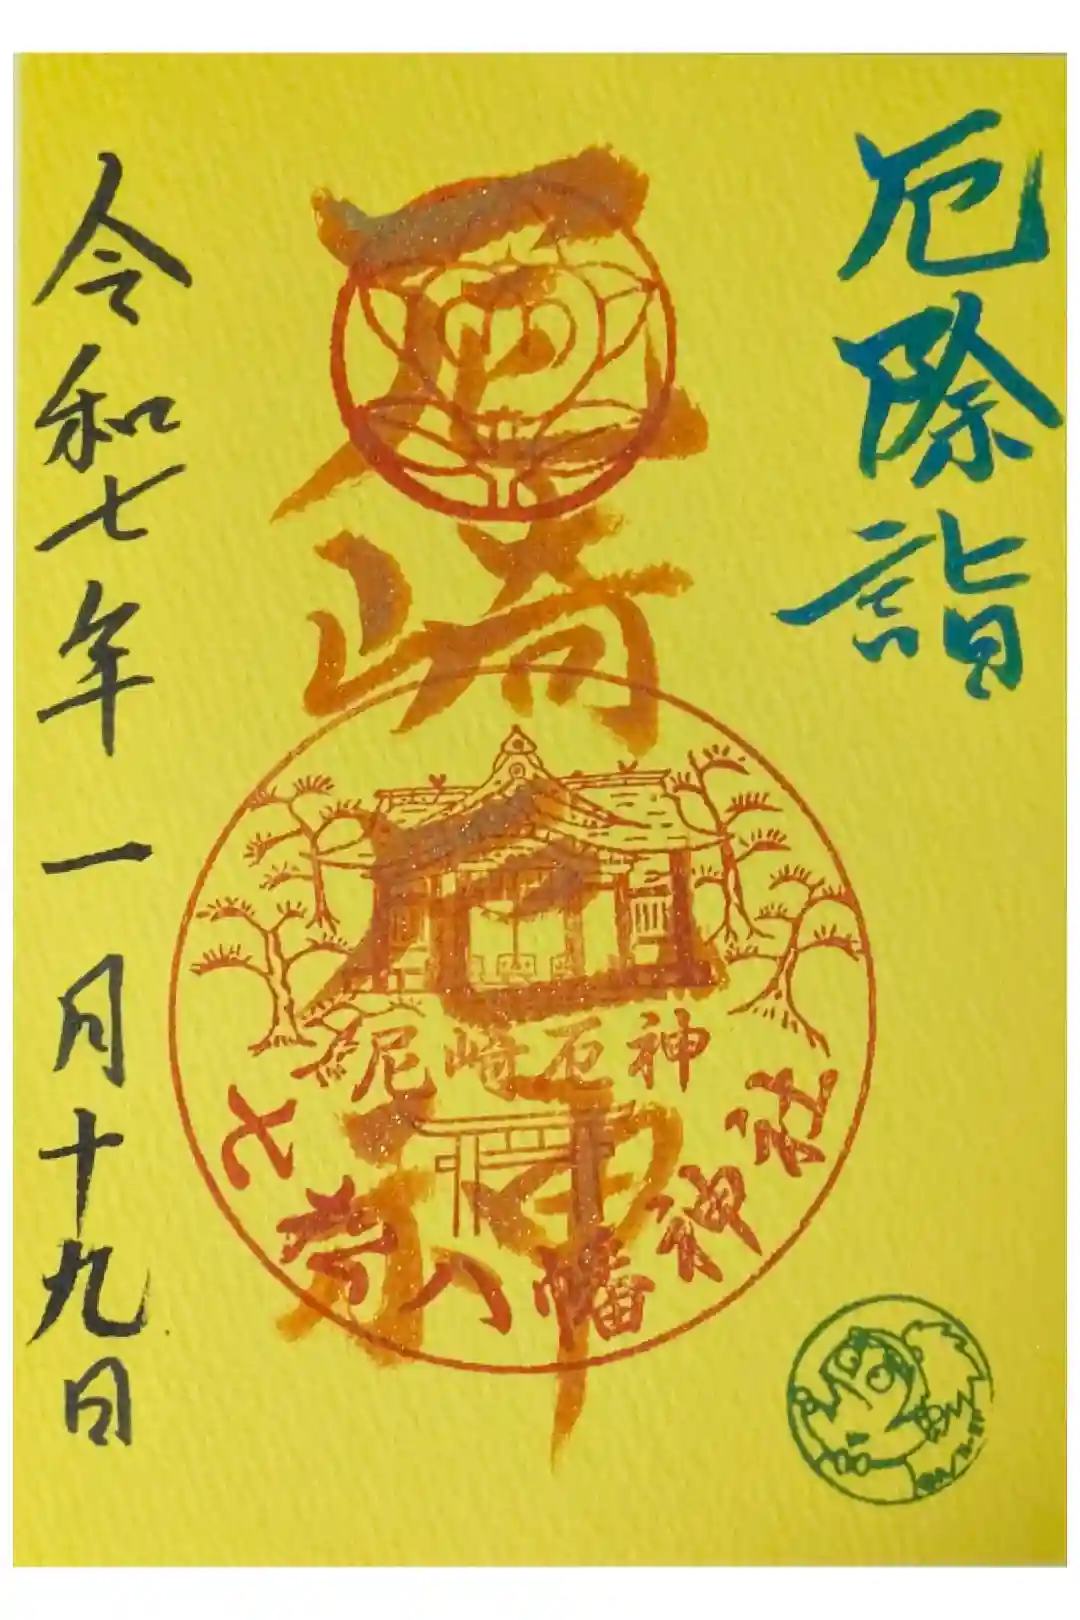 厄除詣
尼崎厄神
尼崎厄神
七枩八幡神社
令和七年一月十九日